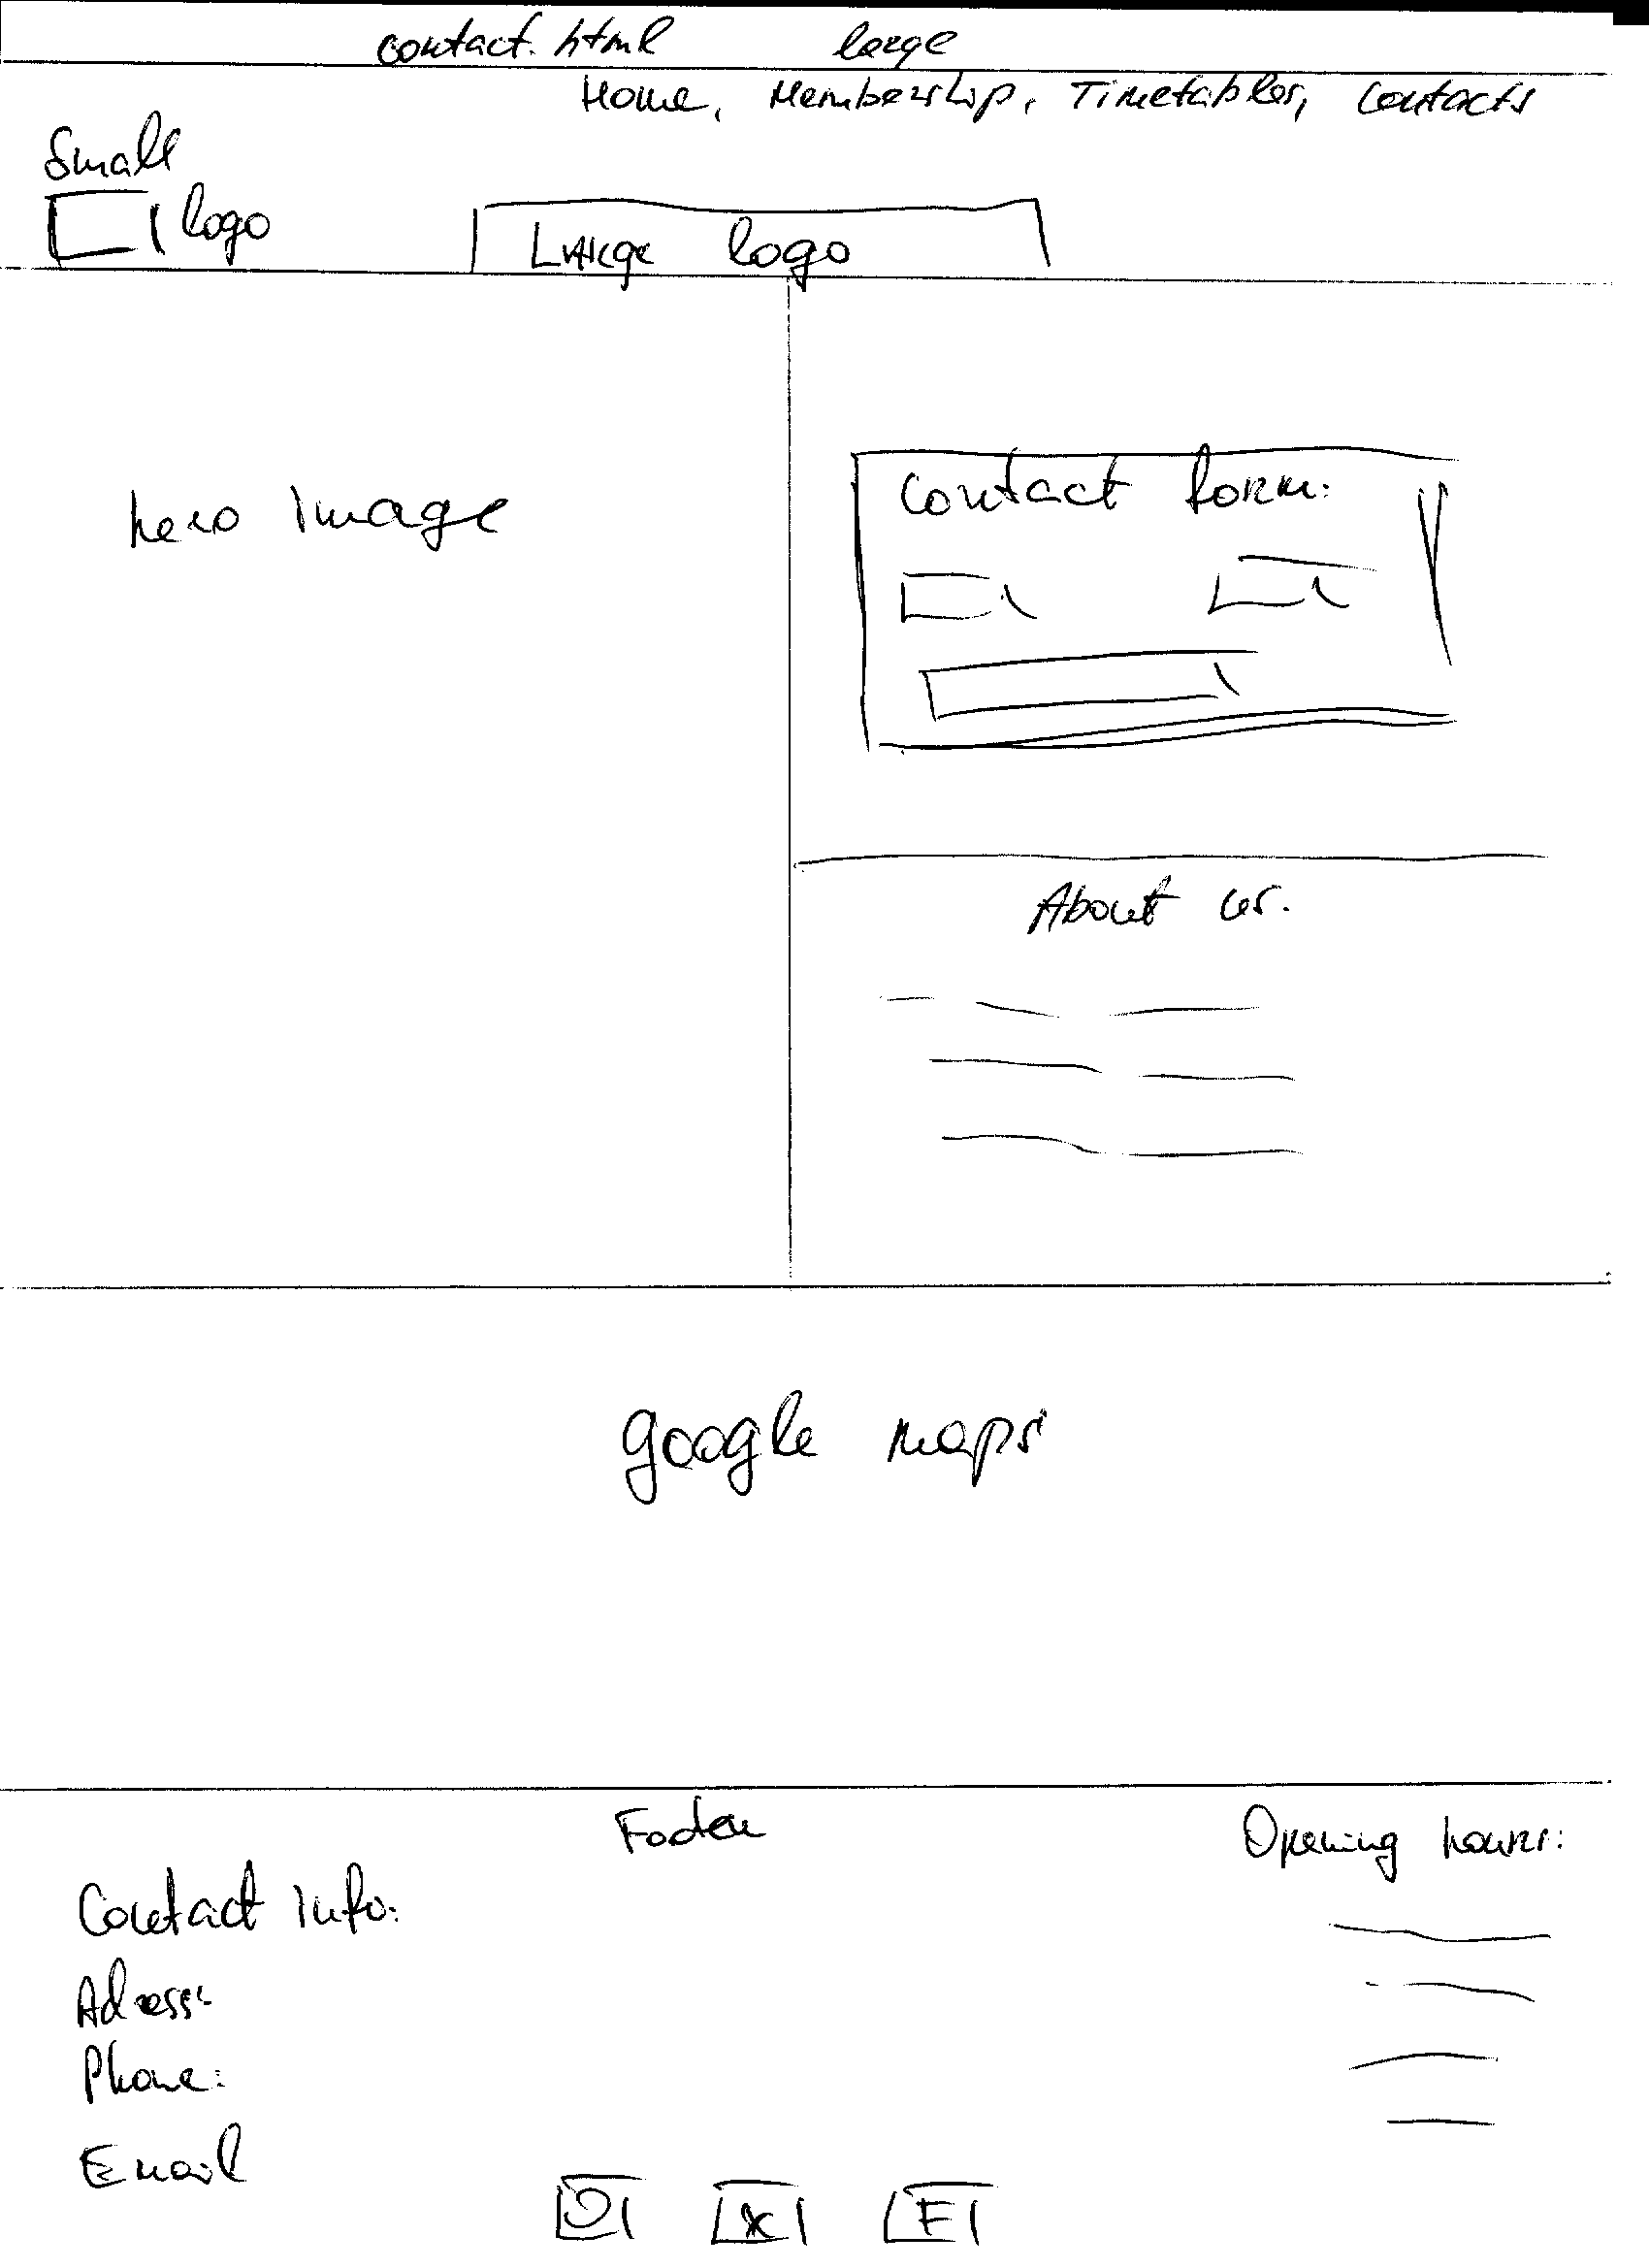 contact.html large
Home, Membership, Timetables, Contacts
Small
logo
Large logo
hero image
Contact form:
About us.
google maps
Footer
Opening hours:
Contact info:
Adress:
Phone:
Email
X F